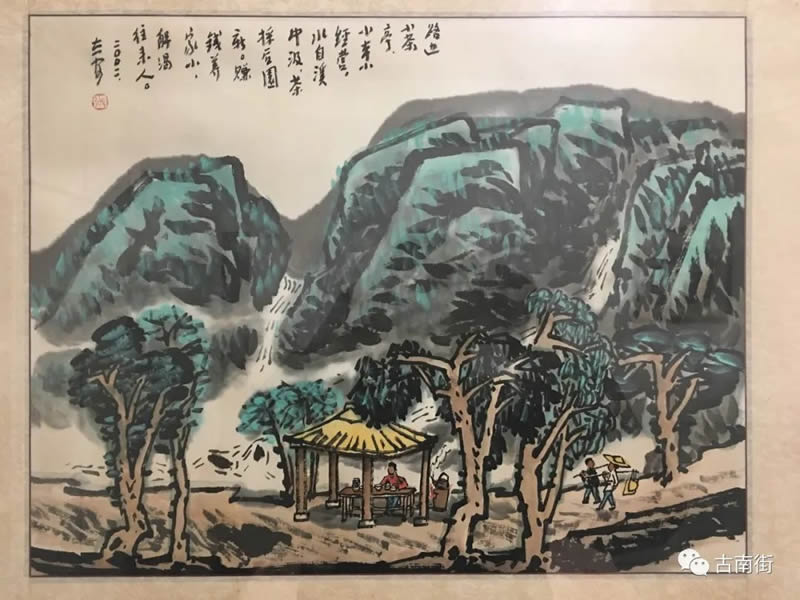 路边
小茶
亭，
小本小
经营。
水自溪
中汲，茶
採后园
新。赚
钱养
家小，
解渴
往来人。
二〇〇二.
古南街